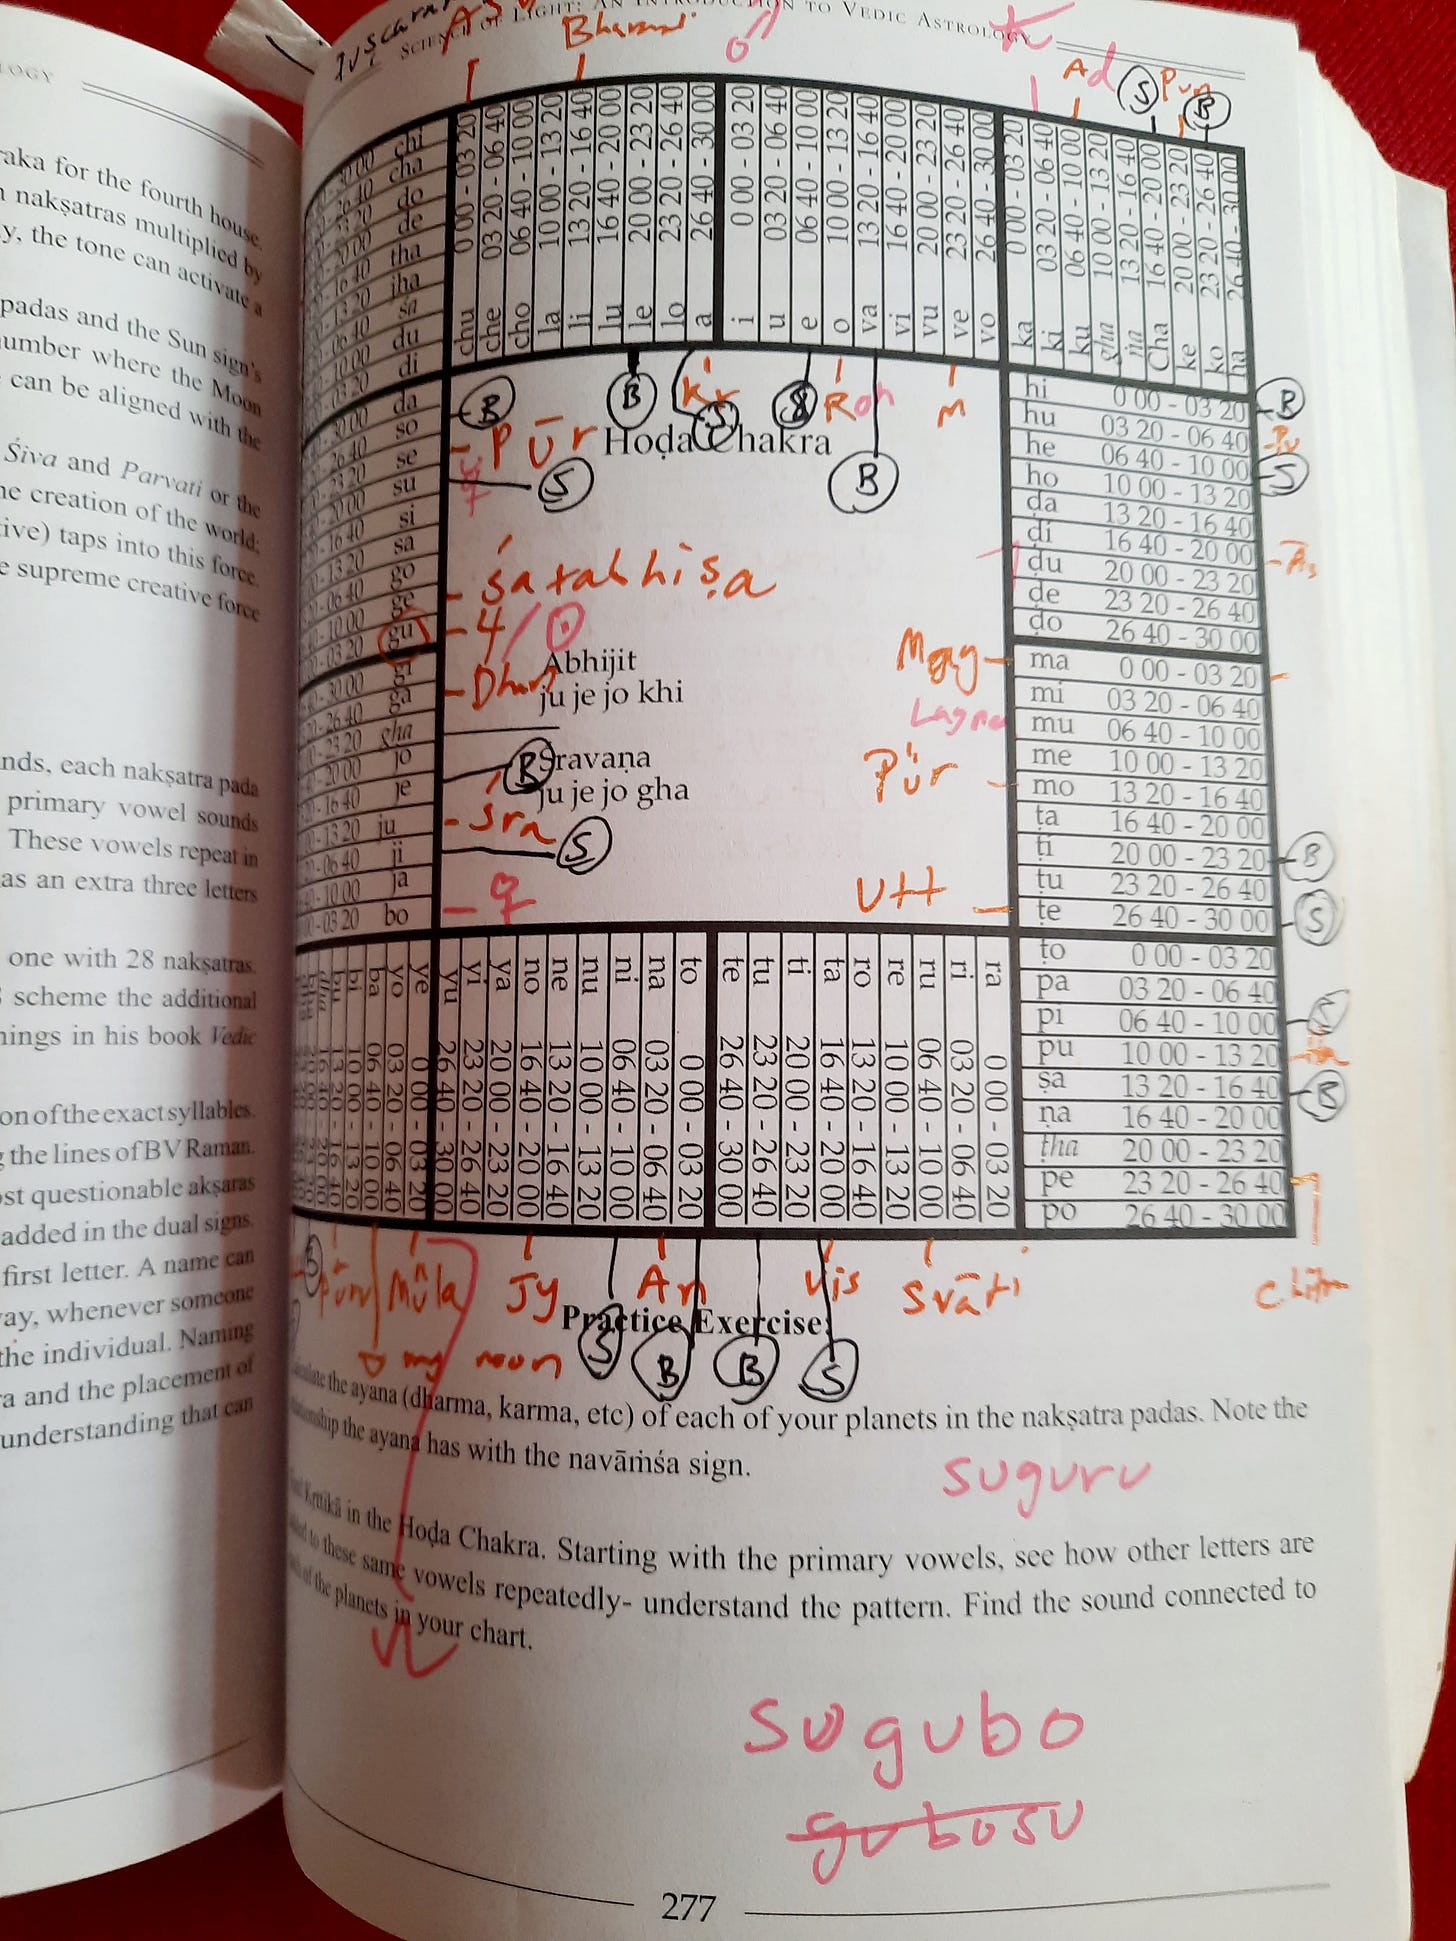 OLOGY
aka for the fourth house.
nakṣatras multiplied by
y, the tone can activate a
padas and the Sun sign's
umber where the Moon
can be aligned with the
Śiva and Parvati or the
e creation of the world;
tive) taps into this force.
e supreme creative force
nds, each nakṣatra pada
primary vowel sounds
These vowels repeat in
as an extra three letters
one with 28 nakṣatras.
scheme the additional
nings in his book Vedic
on of the exact syllables.
g the lines of BV Raman.
st questionable akṣaras
added in the dual signs.
first letter. A name can
ay, whenever someone
the individual. Naming
a and the placement of
understanding that can
SCIENCE OF LIGHT: AN INTRODUCTION TO VEDIC ASTROLOGY
Bharani
Ad
S
Pun
B
chi
cha
do
de
tha
jha
śa
du
di
chu 0 00 - 03 20
che 03 20 - 06 40
cho 06 40 - 10 00
la 10 00 - 13 20
li 13 20 - 16 40
lu 16 40 - 20 00
le 20 00 - 23 20
lo 23 20 - 26 40
a 26 40 - 30 00
i 0 00 - 03 20
u 03 20 - 06 40
e 06 40 - 10 00
o 10 00 - 13 20
va 13 20 - 16 40
vi 16 40 - 20 00
vu 20 00 - 23 20
ve 23 20 - 26 40
vo 26 40 - 30 00
ka 0 00 - 03 20
ki 03 20 - 06 40
ku 06 40 - 10 00
gha 10 00 - 13 20
ña 13 20 - 16 40
Cha 16 40 - 20 00
ke 20 00 - 23 20
ko 23 20 - 26 40
ha 26 40 - 30 00
hi 0 00 - 03 20 B
hu 03 20 - 06 40
he 06 40 - 10 00 S
ho 10 00 - 13 20
ḍa 13 20 - 16 40
ḍi 16 40 - 20 00
ḍu 20 00 - 23 20
ḍe 23 20 - 26 40
ḍo 26 40 - 30 00
ma 0 00 - 03 20
mi 03 20 - 06 40
mu 06 40 - 10 00
me 10 00 - 13 20
mo 13 20 - 16 40
ṭa 16 40 - 20 00
ṭi 20 00 - 23 20 B
ṭu 23 20 - 26 40
ṭe 26 40 - 30 00 S
ṭo 0 00 - 03 20
pa 03 20 - 06 40
pi 06 40 - 10 00
pu 10 00 - 13 20
ṣa 13 20 - 16 40 B
ṇa 16 40 - 20 00
ṭha 20 00 - 23 20
pe 23 20 - 26 40
po 26 40 - 30 00
da
so
se
su
si
sa
go
ge
gu
gi
ga
gha
jo
je
ju
ji
ja
bo
B
B
Kr
S
S
Roh
M
Pūr
Hoḍa Chakra
S
B
śatabhiṣa
4
Abhijit
ju je jo khi
Lagna
Śravaṇa
B
ju je jo gha
Pūr
Śra
S
Utt
ye 0 00 - 03 20
yo 03 20 - 06 40
ba 06 40 - 10 00
bi 10 00 - 13 20
yu 26 40 - 30 00
yi 23 20 - 26 40
ya 20 00 - 23 20
no 16 40 - 20 00
ne 13 20 - 16 40
nu 10 00 - 13 20
ni 06 40 - 10 00
na 03 20 - 06 40
to 0 00 - 03 20
te 26 40 - 30 00
tu 23 20 - 26 40
ti 20 00 - 23 20
ta 16 40 - 20 00
ro 13 20 - 16 40
re 10 00 - 13 20
ru 06 40 - 10 00
ri 03 20 - 06 40
ra 0 00 - 03 20
Mūla
Jy
An
Vis
Svāti
my moon
S
B
B
S
Practice Exercise:
the ayana (dharma, karma, etc) of each of your planets in the nakṣatra padas. Note the
the ayana has with the navāṁśa sign.
suguru
Kṛttikā in the Hoḍa Chakra. Starting with the primary vowels, see how other letters are
to these same vowels repeatedly- understand the pattern. Find the sound connected to
of the planets in your chart.
sugubo
gubosu
277